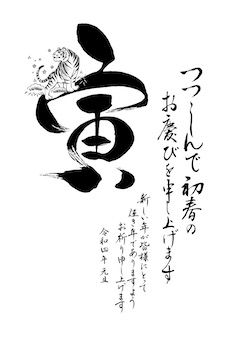 つつしんで初春の
お慶びを申し上げます
寅
新しい年が皆様にとって
佳き年でありますよう
お祈り申し上げます
令和四年 元旦